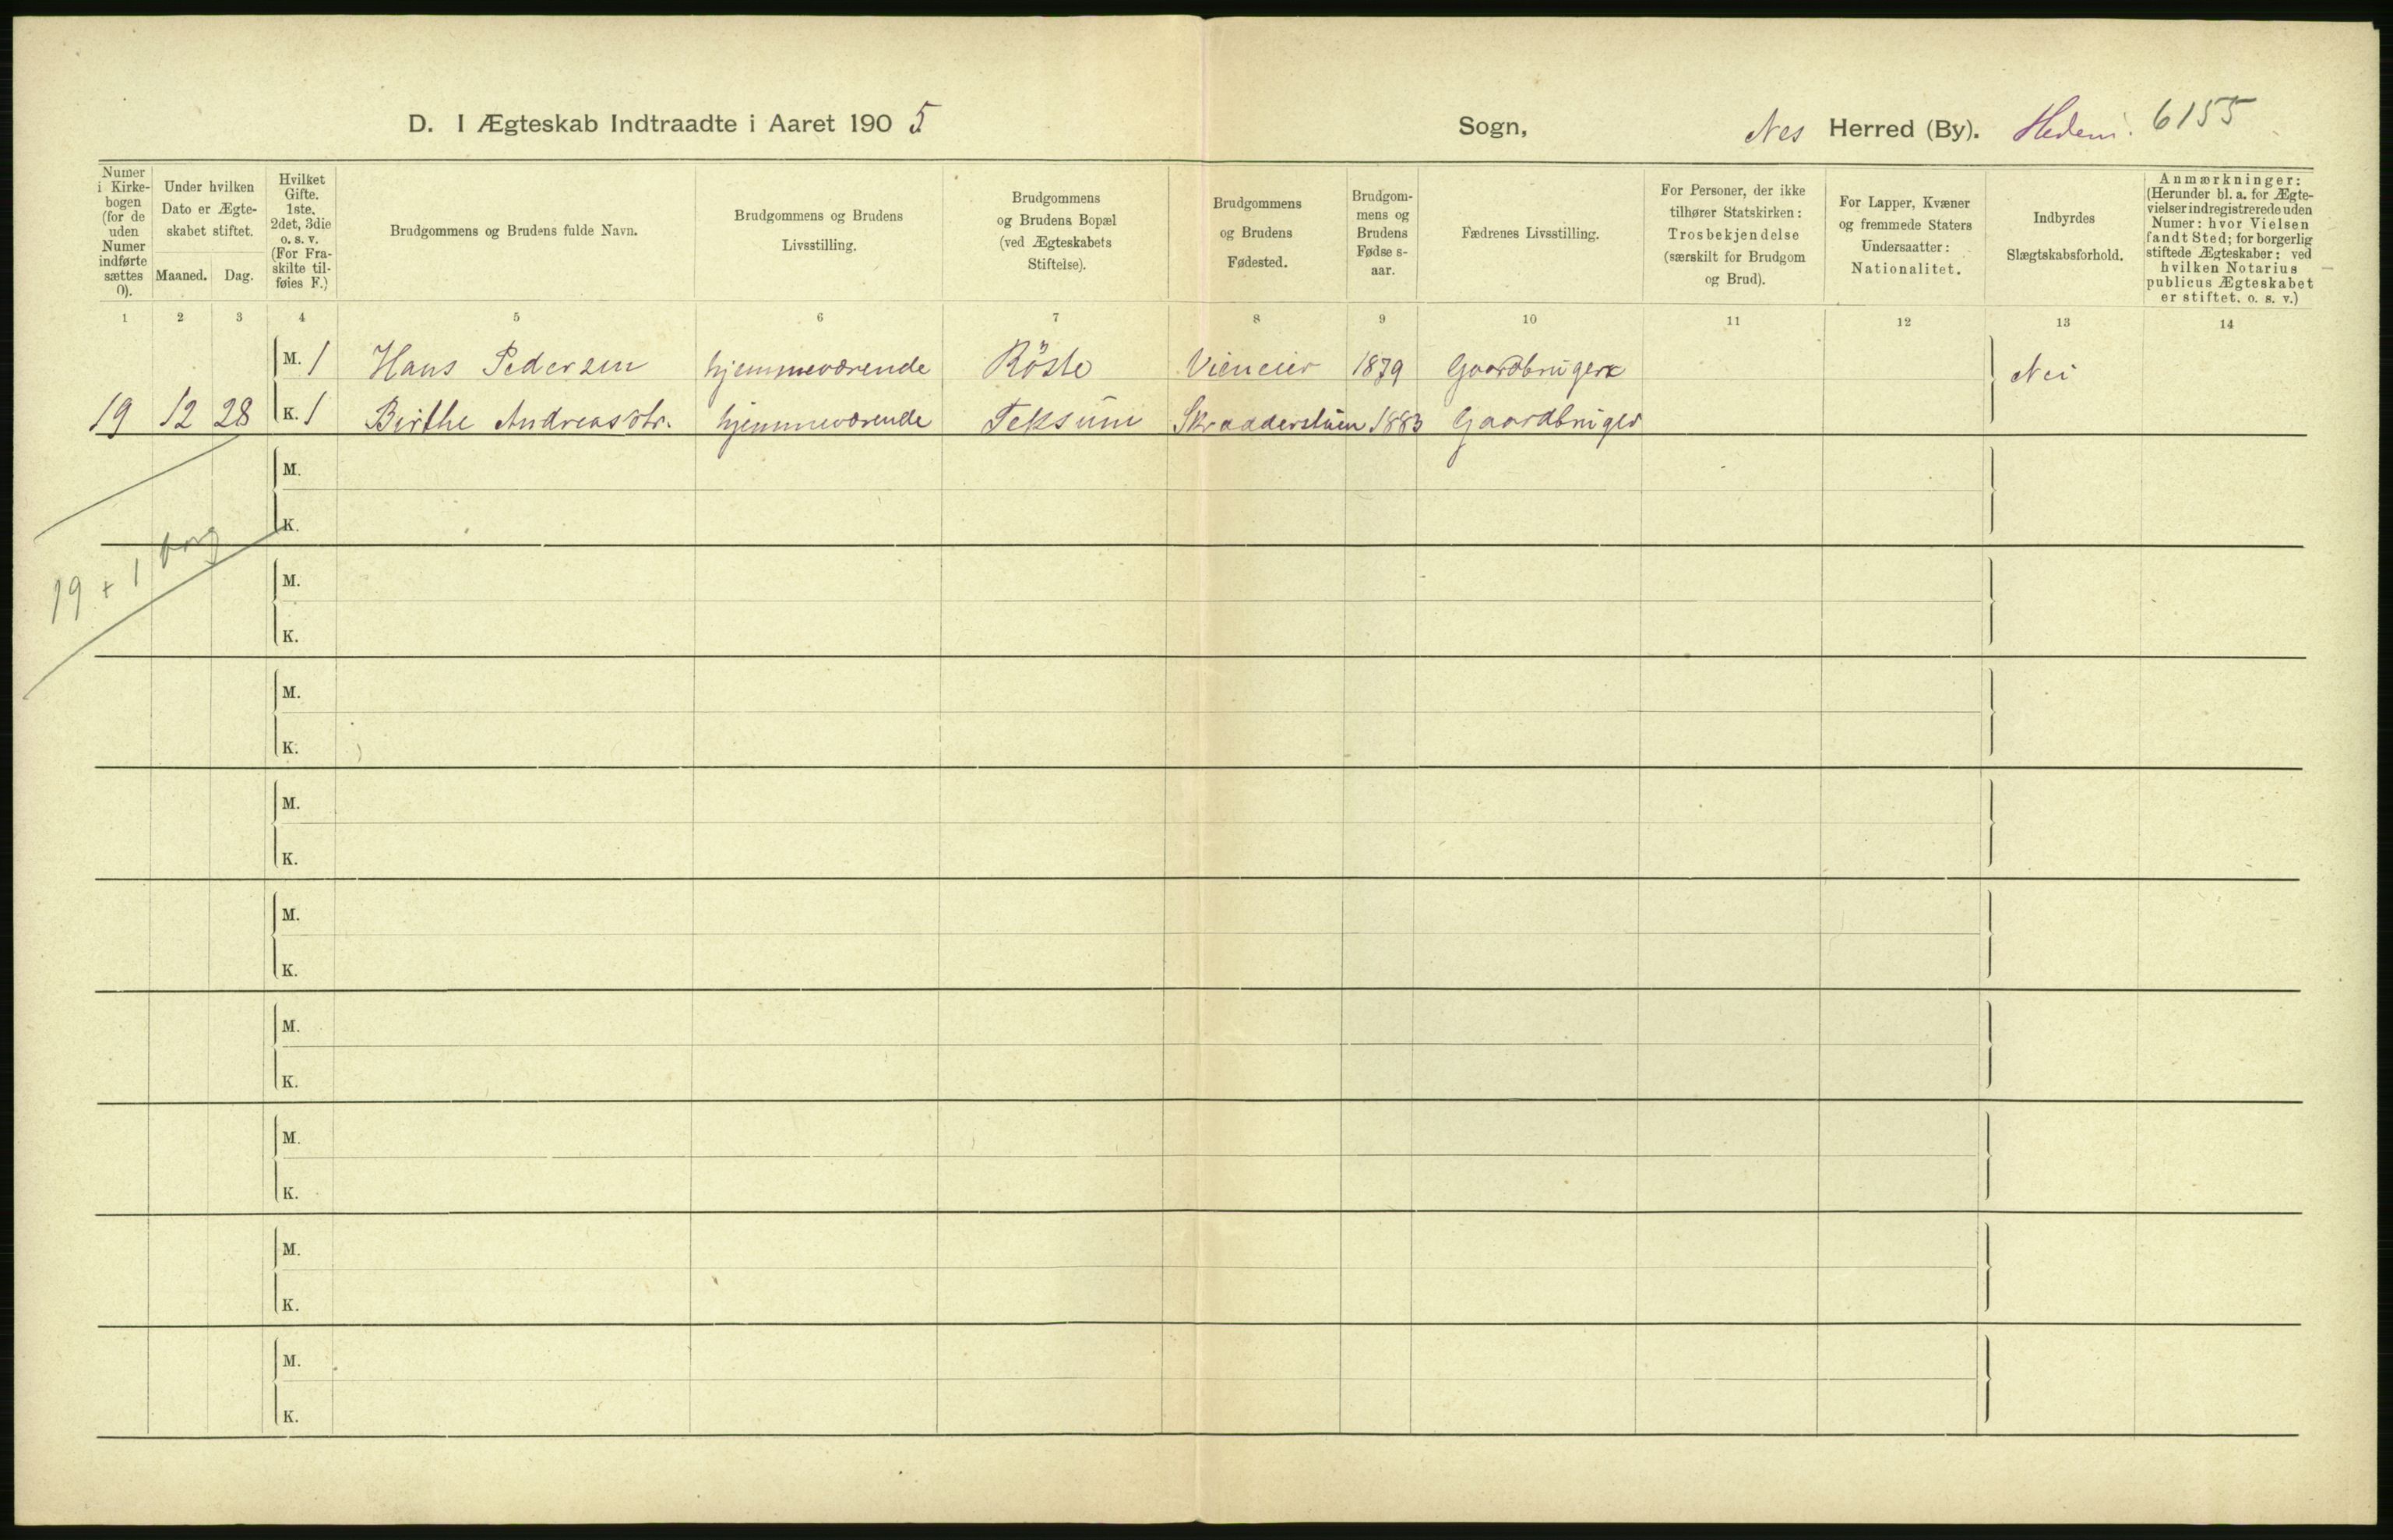 D. I Ægteskab Indtraadte i Aaret 1905
Sogn, Nes Herred (By). Hedem. 6155
Numer i Kirke-bogen (for de uden Numer indførte sættes 0).
Under hvilken Dato er Ægte-skabet stiftet.
Maaned. Dag.
Hvilket Gifte. 1ste, 2det, 3die o. s. v. (For Fra-skilte til-føies F.)
Brudgommens og Brudens fulde Navn.
Brudgommens og Brudens Livsstilling.
Brudgommens og Brudens Bopæl (ved Ægteskabets Stiftelse).
Brudgommens og Brudens Fødested.
Brudgom-mens og Brudens Fødse s-aar.
Fædrenes Livsstilling.
For Personer, der ikke tilhører Statskirken: Trosbekjendelse (særskilt for Brudgom og Brud).
For Lapper, Kvæner og fremmede Staters Undersaatter: Nationalitet.
Indbyrdes Slægtskabsforhold.
Anmærkninger: (Herunder bl. a. for Ægte-vielser indregistrerede uden Numer: hvor Vielsen fandt Sted; for borgerlig stiftede Ægteskaber: ved hvilken Notarius publicus Ægteskabet er stiftet. o. s. v.)
1 2 3 4 5 6 7 8 9 10 11 12 13 14
M. 1 Hans Pedersen hjemmeværende Röste Vieneier 1879 Gaardbruger Nei
19 12 28 K. 1 Birthe Andreasdtr. hjemmeværende Teksum Skraadderstuen 1883 Gaardbruger
M.
K.
19 + 1 borg
M.
K.
M.
K.
M.
K.
M.
K.
M.
K.
M.
K.
M.
K.
M.
K.